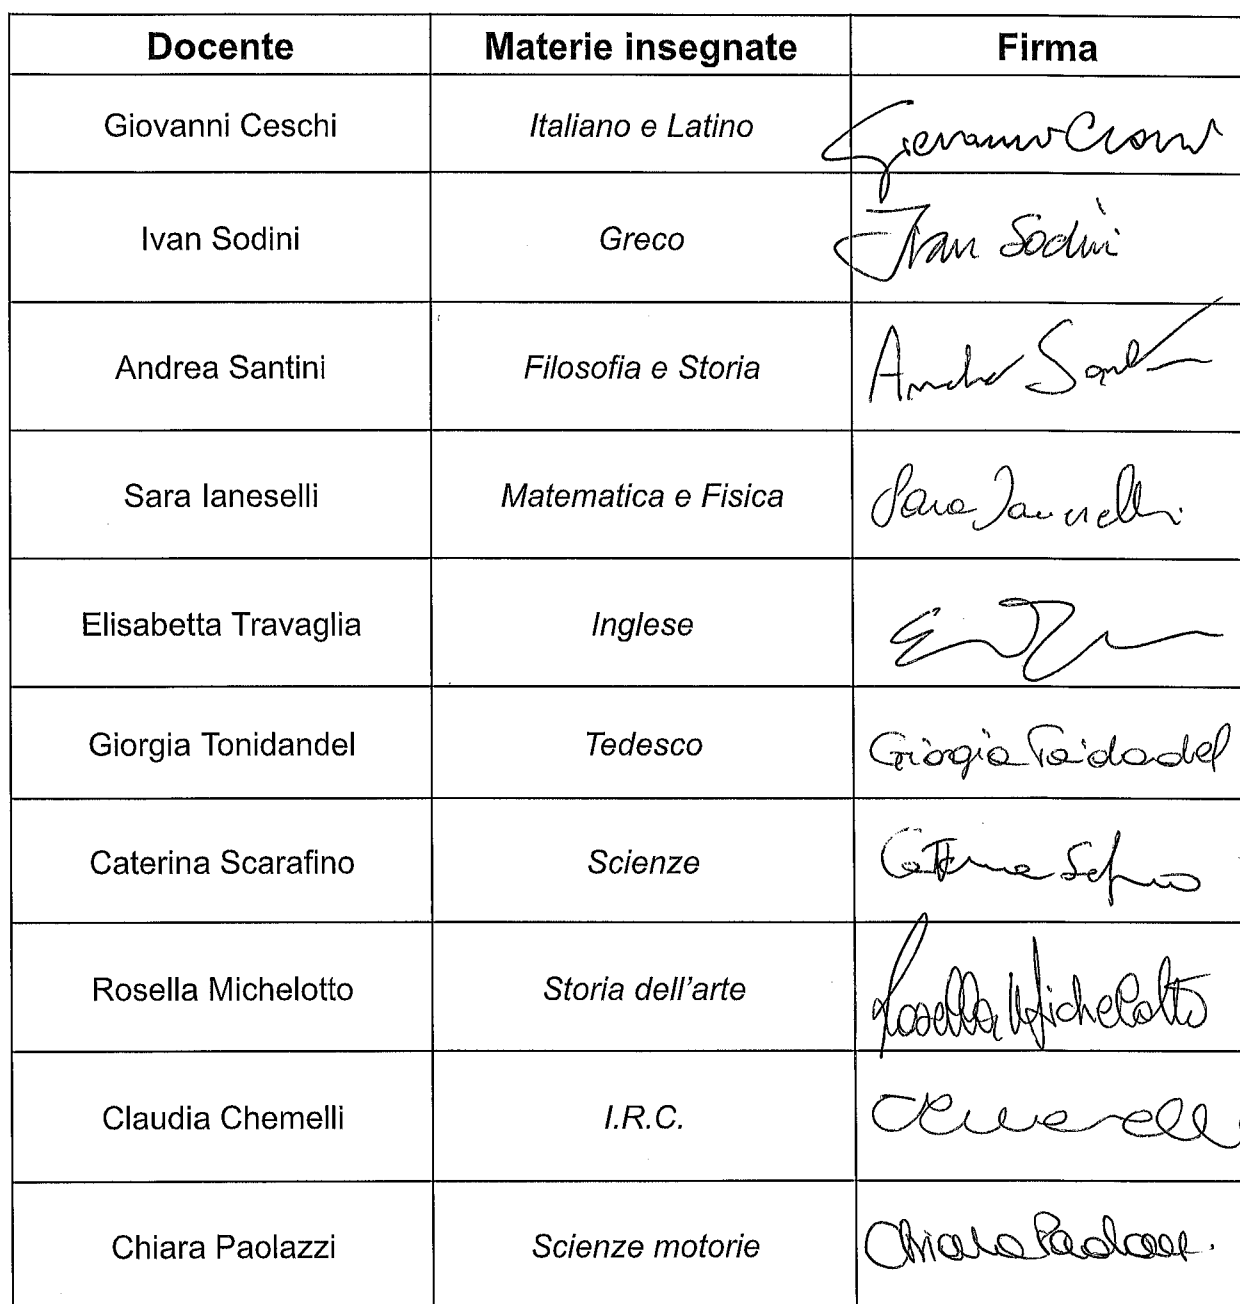 Docente Materie insegnate Firma
Giovanni Ceschi Italiano e Latino Giovanni Ceschi
Ivan Sodini Greco Ivan Sodini
Andrea Santini Filosofia e Storia Andrea
Sara Ianeselli Matematica e Fisica Sara Ianeselli
Elisabetta Travaglia Inglese
Giorgia Tonidandel Tedesco Giorgia Tonidandel
Caterina Scarafino Scienze Caterina
Rosella Michelotto Storia dell'arte Rosella Michelotto
Claudia Chemelli I.R.C. Chemelli
Chiara Paolazzi Scienze motorie Chiara Paolazzi